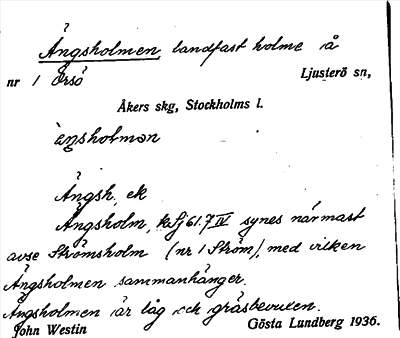 Ängsholmen, landfast holme å
nr 1 Örsö Ljusterö sn,
Åkers skg, Stockholms l.
ängsholmən
Ängsh. ek
Ängsholm, kSj 61.7 IV synes närmast
avse Strömsholm (nr 1 Ström), med vilken
Ängsholmen sammanhänger.
Ängsholmen är låg och gräsbevuxen.
John Westin Gösta Lundberg 1936.